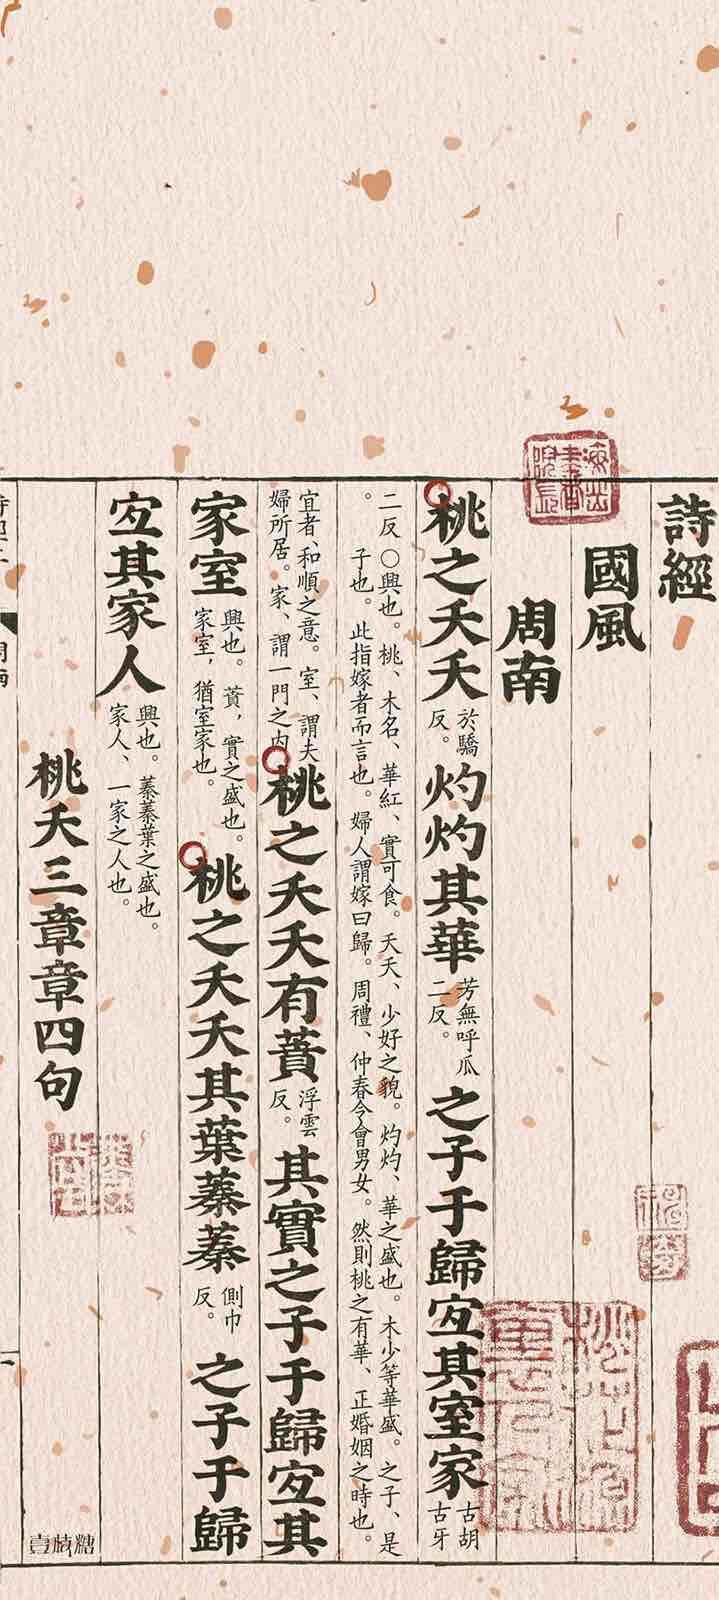 詩經
國風
周南
桃之夭夭於驕反。灼灼其華芳無呼瓜二反。之子于歸宐其室家古胡古牙
二反〇興也。桃、木名、華紅、實可食。夭夭、少好之貌。灼灼、華之盛也。木少等華盛。之子、是
。子也。此指嫁者而言也。婦人謂嫁曰歸。周禮、仲春令會男女。然則桃之有華、正婚姻之時也。
宜者、和順之意。室、謂夫婦所居。家、謂一門之内桃之夭夭有蕡浮雲反。其實之子于歸宐其
家室興也。蕡,實之盛也。家室,猶室家也。桃之夭夭其葉蓁蓁側巾反。之子于歸
宐其家人興也。蓁蓁葉之盛也。家人、一家之人也。
桃夭三章章四句
壹枝糖